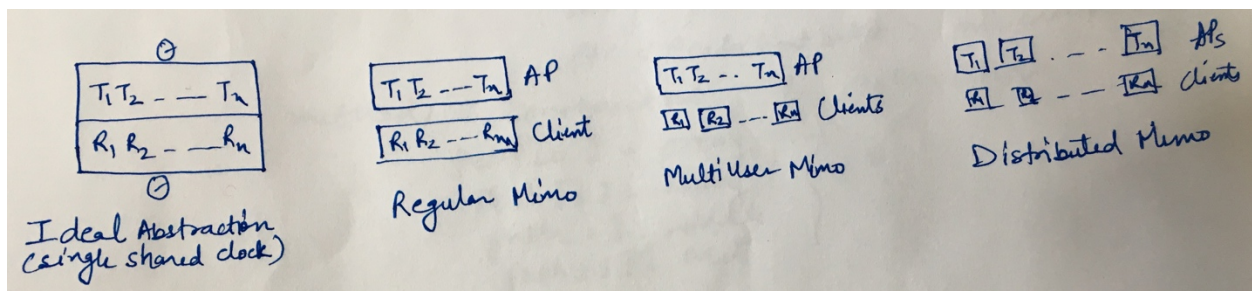 T₁ T₂ - — Tₙ
R₁ R₂ - — Rₙ
Ideal Abstraction
(single shared clock)
T₁ T₂ --- Tₙ AP
R₁ R₂ --- Rₙ Client
Regular Mimo
T₁ T₂ -.. Tₙ AP
R₁ R₂ --- Rₙ Clients
MultiUser Mimo
T₁ T₂ . - - Tₙ APs
R₁ R₂ - - - Rₙ Clients
Distributed Mimo